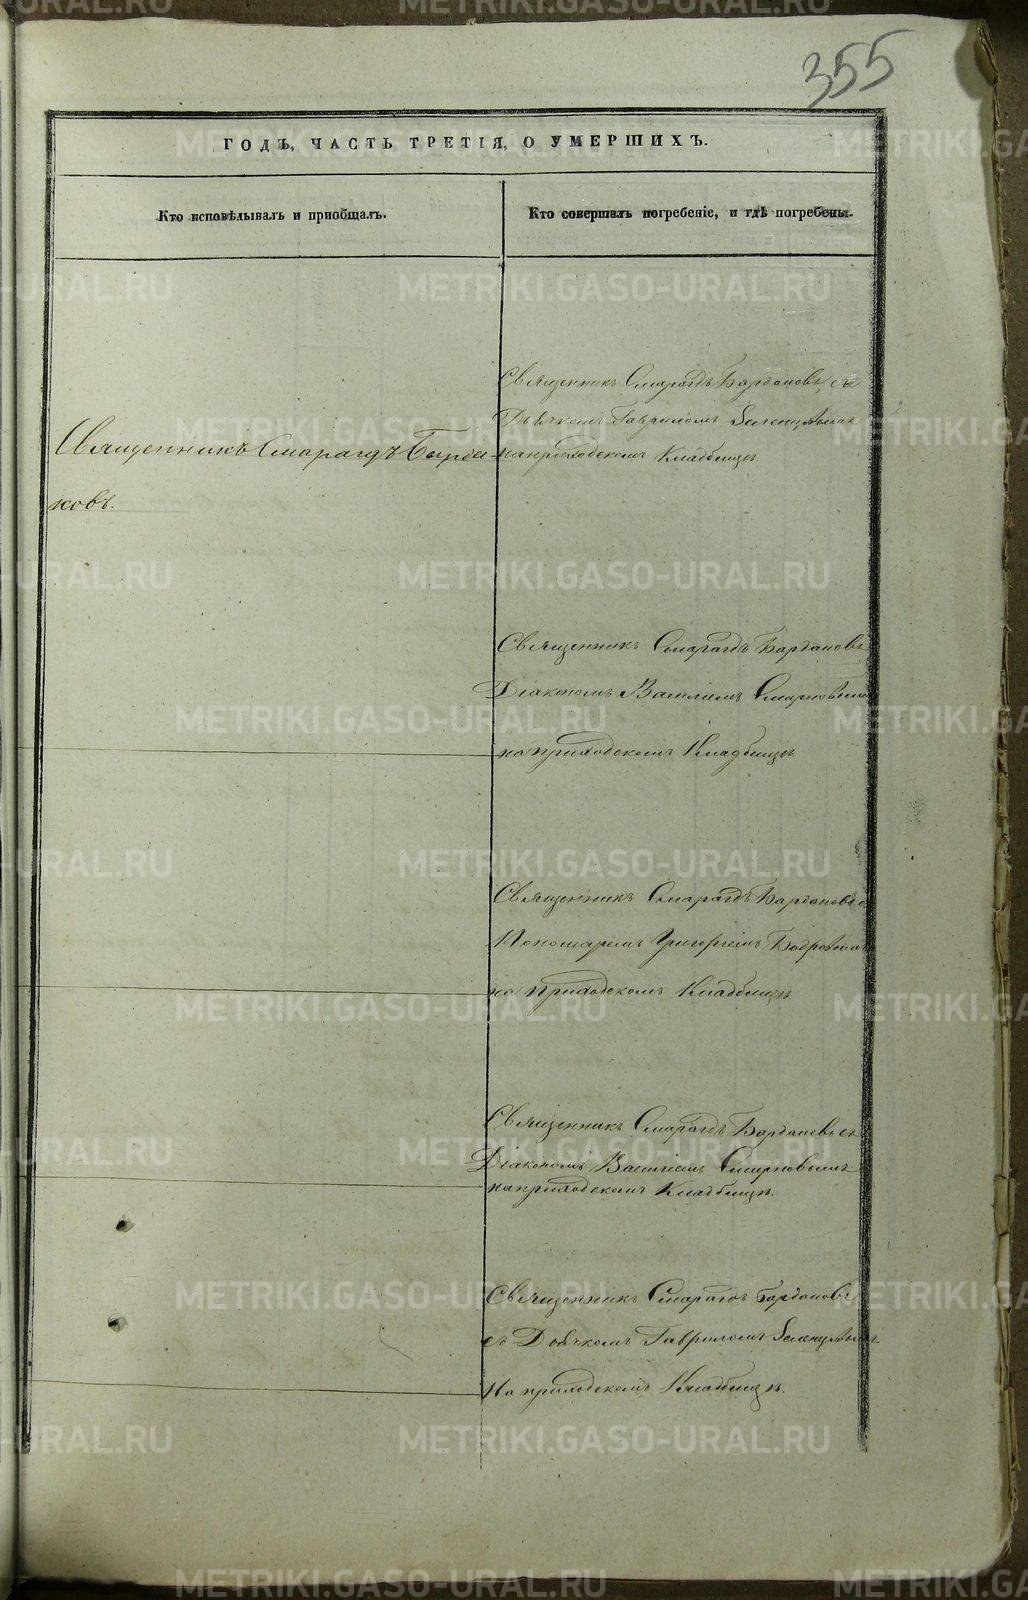 355
ГОДЪ, ЧАСТЬ ТРЕТІЯ, О УМЕРШИХЪ.
Кто исповѣдывалъ и приобщалъ.
Кто совершалъ погребеніе, и гдѣ погребены.
Священникъ Смарагдъ Бурда
ковъ.
Священникъ Смарагдъ Бурдаковъ, съ
Дьячкомъ Гавриломъ
на приходскомъ Кладбищѣ
Священникъ Смарагдъ Бурдаковъ
Діакономъ Василіемъ Смирновымъ
на приходскомъ Кладбищѣ
Священникъ Смарагдъ Бурдаковъ с
Пономаремъ Григоріемъ
на приходскомъ Кладбищѣ
Священникъ Смарагдъ Бурдаковъ съ
Діакономъ Василіемъ Смирновымъ
на приходскомъ Кладбищѣ.
Священникъ Смарагдъ Бурдаковъ
съ Дьячкомъ Гавриломъ
На приходскомъ Кладбищѣ.
METRIKI.GASO-URAL.RU